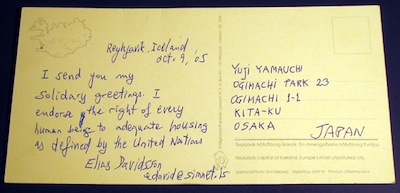 Reykjavik, Iceland
Oct. 9, '05
I send you my
Solidary greetings. I
endorse the right of every
human being to adequate housing
as defined by the United Nations
Elias Davidsson
edavid@simnet.is
YUJI YAMAUCHI
OGIMACHI PARK 23
OGIMACHI 1-1
KITA-KU
OSAKA
JAPAN
Reykjavík, capital of Iceland. Europe's most unpolluted city.